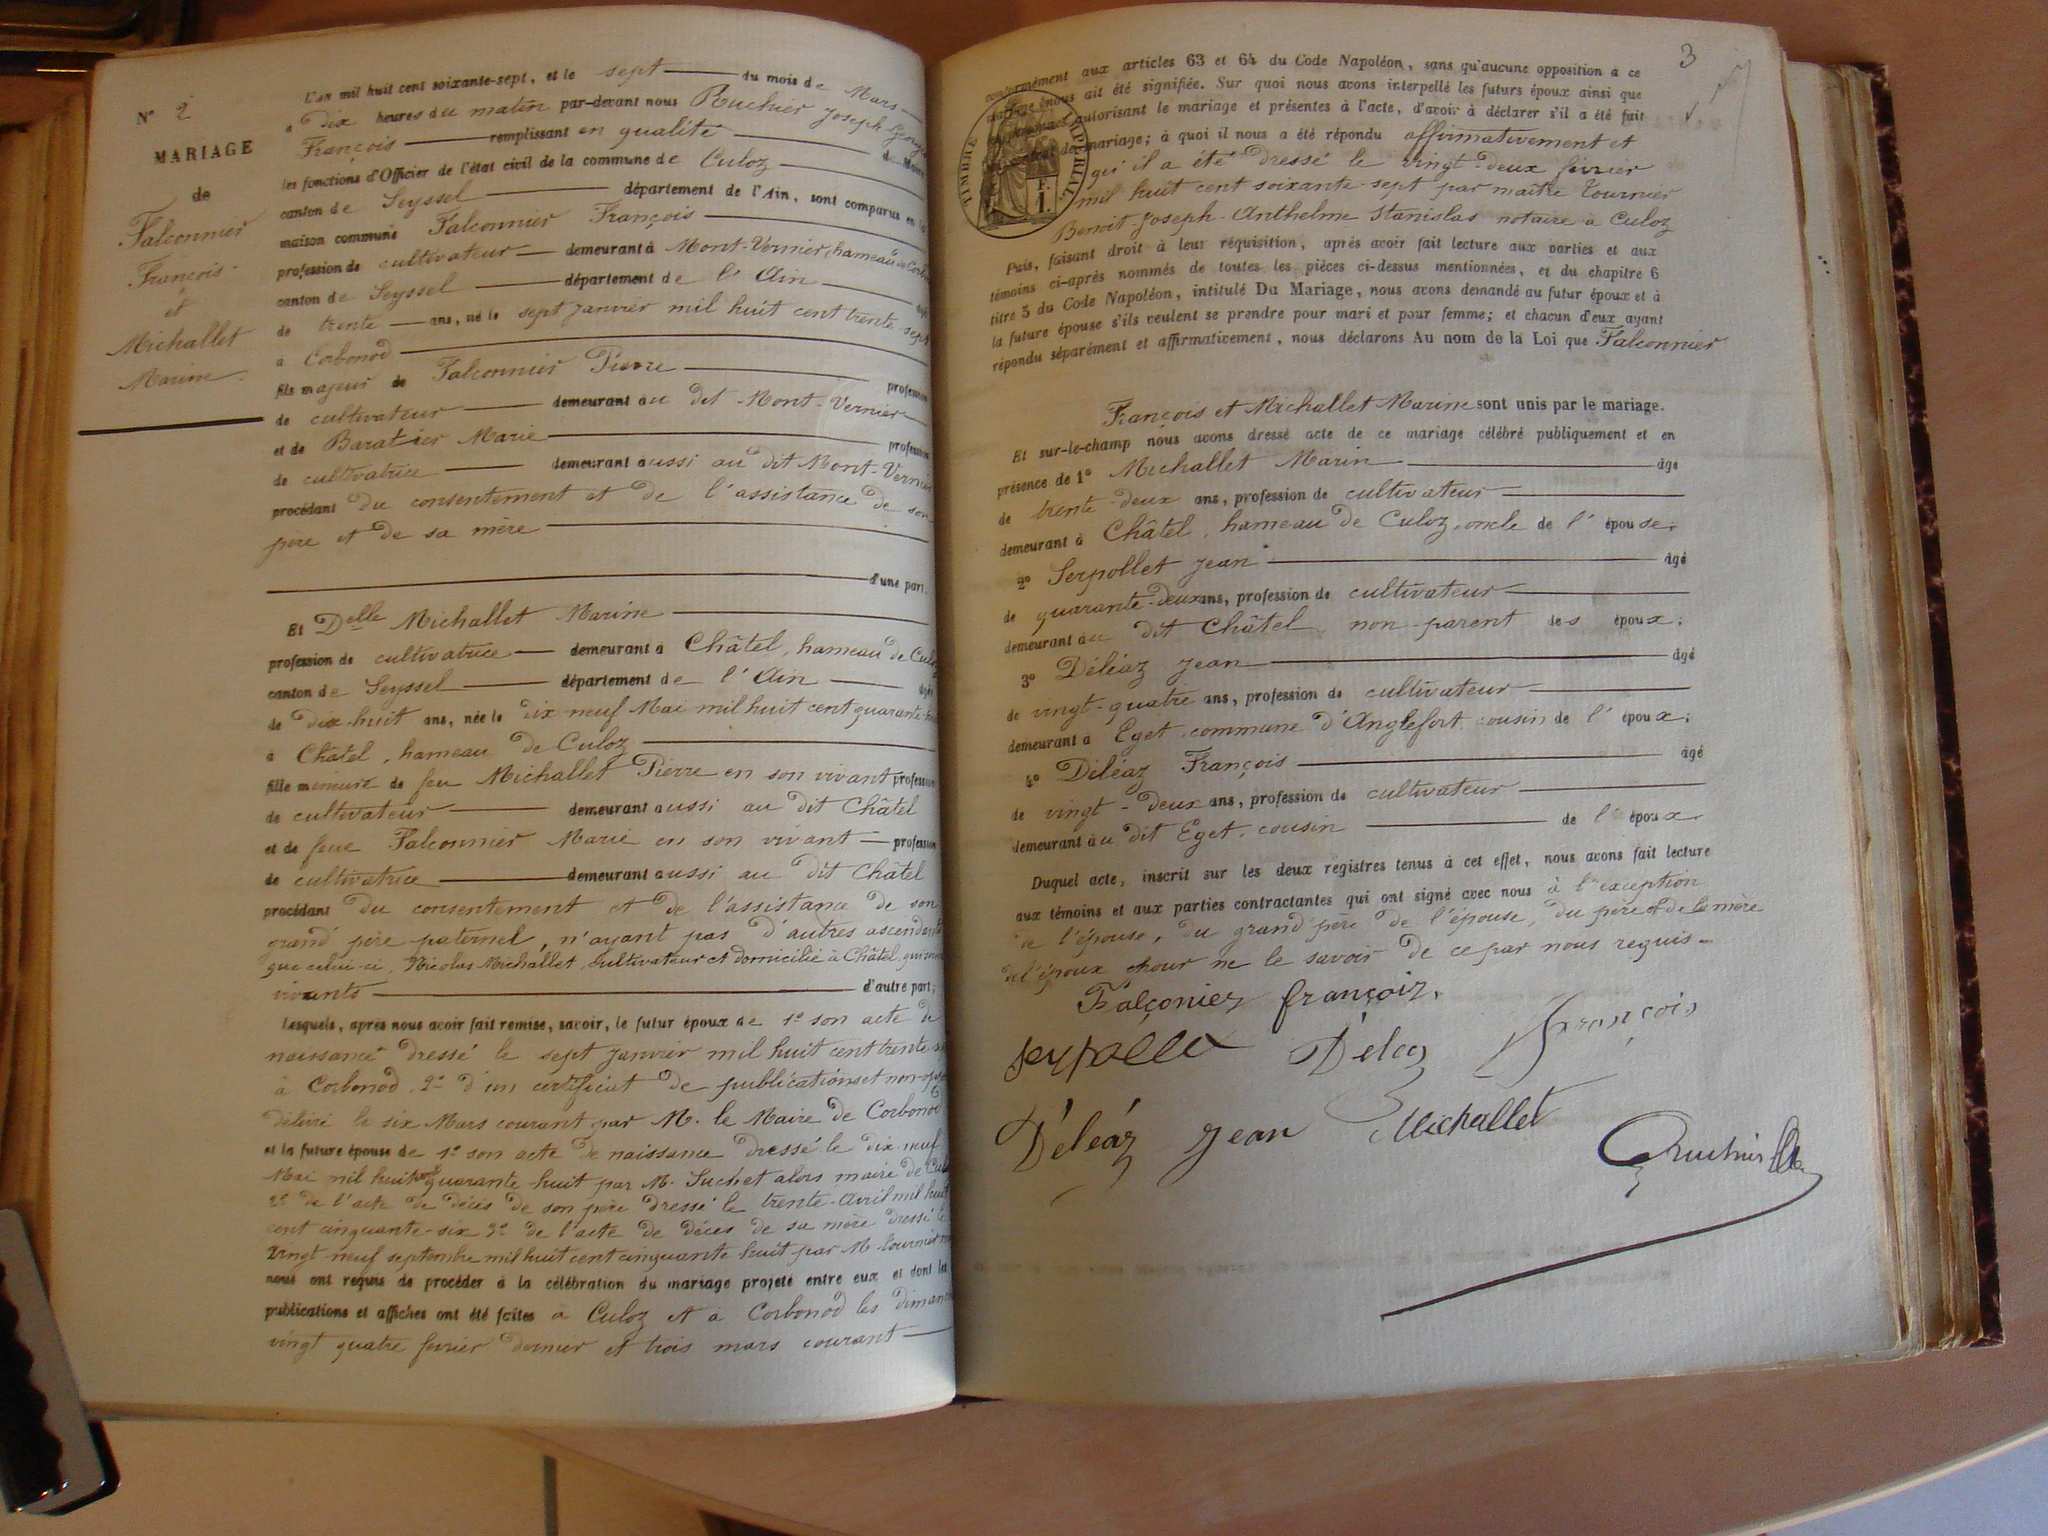 N° 2
MARIAGE
de
Falconnier
François
et
Michallet
Marine.
L'an mil huit cent soixante-sept, et le sept du mois de Mars
à Dix heures du matin par-devant nous Ruchier Joseph
François remplissant en qualité de
les fonctions d'Officier de l'état civil de la commune de Culoz
canton de Seyssel département de l'Ain, sont comparus en la
maison commune Falconnier François
profession de cultivateur demeurant à Mont-Vernier, hameau de
canton de Seyssel département de l'Ain
de trente ans, né le sept Janvier mil huit cent trente-sept
à Corbonod
fils majeur de Falconnier Pierre profession
de cultivateur demeurant au dit Mont-Vernier
et de Baratier Marie profession
de cultivatrice demeurant aussi au dit Mont-Vernier
procédant du consentement et de l'assistance de son
père et de sa mère
d'une part.
Et Delle Michallet Marine
profession de cultivatrice demeurant à Châtel, hameau de Culoz
canton de Seyssel département de l'Ain âgée
de dix-huit ans, née le dix neuf Mai mil huit cent quarante
à Châtel, hameau de Culoz
fille mineure de feu Michallet Pierre en son vivant profession
de cultivateur demeurant aussi au dit Châtel
et de feue Falconnier Marie en son vivant profession
de cultivatrice demeurant aussi au dit Châtel
procédant du consentement et de l'assistance de son
grand père paternel, n'ayant pas d'autres ascendants
que celui-ci, Nicolas Michallet, cultivateur et domicilié à Châtel,
vivants d'autre part;
Lesquels, après nous avoir fait remise, savoir, le futur époux de 1° son acte de
naissance dressé le sept Janvier mil huit cent trente
à Corbonod, 2° d'un certificat de publications et non-
délivré le six Mars courant par M. le Maire de Corbonod
et la future épouse de 1° son acte de naissance dressé le dix-neuf
Mai mil huit cent quarante huit par M. Suchet alors maire de Culoz
2° de l'acte de décès de son père dressé le trente Avril mil huit
cent cinquante-six 3° de l'acte de décès de sa mère dressé le
vingt-neuf septembre mil huit cent cinquante huit par M. Tournier
nous ont requis de procéder à la célébration du mariage projeté entre eux et dont les
publications et affiches ont été faites à Culoz et à Corbonod les dimanches
vingt quatre février dernier et trois mars courant
3
conformément aux articles 63 et 64 du Code Napoléon, sans qu'aucune opposition à ce
mariage nous ait été signifiée. Sur quoi nous avons interpellé les futurs époux ainsi que
autorisant le mariage et présentes à l'acte, d'avoir à déclarer s'il a été fait
de mariage; à quoi il nous a été répondu affirmativement et
qu'il a été dressé le vingt-deux février
mil huit cent soixante sept par maître Tournier
Benoit Joseph-Anthelme Stanislas notaire à Culoz
TIMBRE IMPERIAL
F. 1.
Puis, faisant droit à leur réquisition, après avoir fait lecture aux parties et aux
témoins ci-après nommés de toutes les pièces ci-dessus mentionnées, et du chapitre 6
titre 5 du Code Napoléon, intitulé Du Mariage, nous avons demandé au futur époux et à
la future épouse s'ils veulent se prendre pour mari et pour femme; et chacun d'eux ayant
répondu séparément et affirmativement, nous déclarons Au nom de la Loi que Falconnier
François et Michallet Marine sont unis par le mariage.
Et sur-le-champ nous avons dressé acte de ce mariage célébré publiquement et en
présence de 1° Michallet Marin âgé
de trente-deux ans, profession de cultivateur
demeurant à Châtel, hameau de Culoz, oncle de l'épouse;
2° Serpollet Jean âgé
de quarante-deux ans, profession de cultivateur
demeurant au dit Châtel, non-parent des époux;
3° Déléaz Jean âgé
de vingt-quatre ans, profession de cultivateur
demeurant à Eget commune d'Anglefort cousin de l'époux;
4° Déléaz François âgé
de vingt-deux ans, profession de cultivateur
demeurant au dit Eget, cousin de l'époux.
Duquel acte, inscrit sur les deux registres tenus à cet effet, nous avons fait lecture
aux témoins et aux parties contractantes qui ont signé avec nous à l'exception
de l'épouse, du grand père de l'épouse, du père et de la mère
de l'époux pour ne le savoir de ce par nous requis.
Falçonier françoir.
Délea françois
Déléaz Jean Michallet